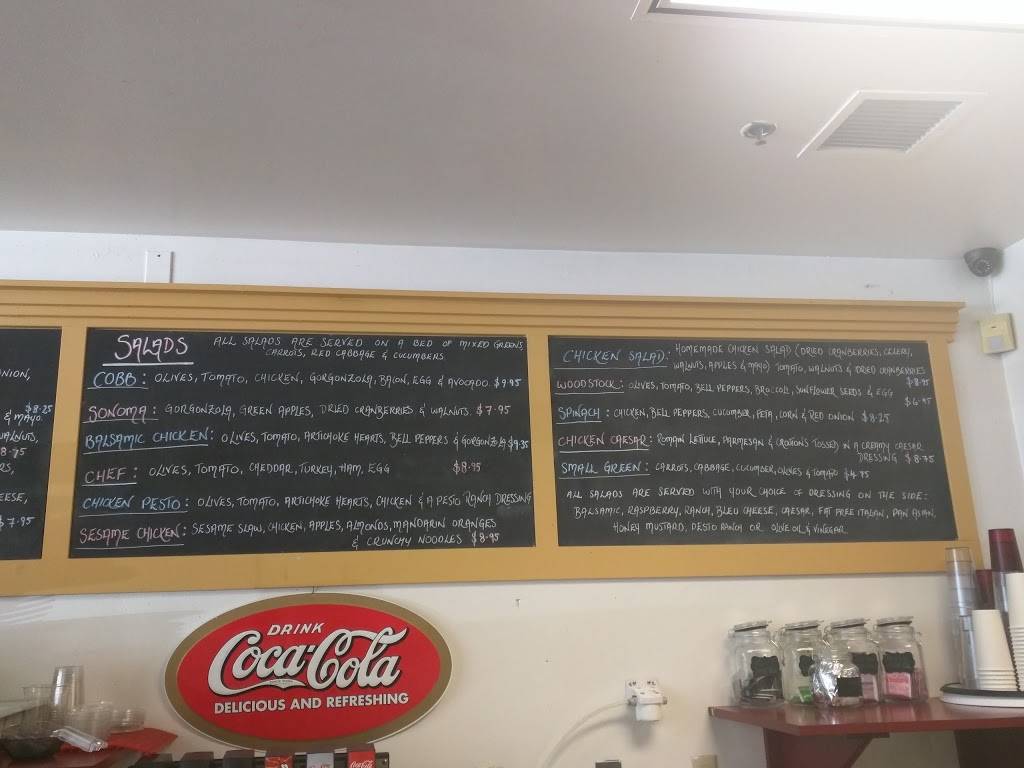 NION,
$8.25
& MAYO
WALNUTS,
8.95
EESE,
$7.95
SALADS
ALL SALADS ARE SERVED ON A BED OF MIXED GREENS,
CARROTS, RED CABBAGE & CUCUMBERS
COBB: OLIVES, TOMATO, CHICKEN, GORGONZOLA, BACON, EGG & AVOCADO $9.95
SONOMA: GORGONZOLA, GREEN APPLES, DRIED CRANBERRIES & WALNUTS. $7.95
BALSAMIC CHICKEN: OLIVES, TOMATO, ARTICHOKE HEARTS, BELL PEPPERS & GORGONZOLA
CHEF: OLIVES, TOMATO, CHEDDAR, TURKEY, HAM, EGG $8.95
CHICKEN PESTO: OLIVES, TOMATO, ARTICHOKE HEARTS, CHICKEN & A PESTO RANCH DRESSING
SESAME CHICKEN: SESAME SLAW, CHICKEN, APPLES, ALMONDS, MANDARIN ORANGES
& CRUNCHY NOODLES $8.95
CHICKEN SALAD: HOMEMADE CHICKEN SALAD (DRIED CRANBERRIES, CELERY,
WALNUTS, APPLES & MAYO) TOMATO, WALNUTS & DRIED CRANBERRIES
$8.95
WOODSTOCK: OLIVES, TOMATO, BELL PEPPERS, BROCCOLI, SUNFLOWER SEEDS & EGG
$6.95
SPINACH: CHICKEN, BELL PEPPERS, CUCUMBER, FETA, CORN & RED ONION $8.25
CHICKEN CAESAR: ROMAIN LETTUCE, PARMESAN & CROUTONS TOSSED IN A CREAMY CAESAR
DRESSING $8.75
SMALL GREEN: CARROTS, CABBAGE, CUCUMBER, OLIVES & TOMATO $4.95
ALL SALADS ARE SERVED WITH YOUR CHOICE OF DRESSING ON THE SIDE:
BALSAMIC, RASPBERRY, RANCH, BLEU CHEESE, CAESAR, FAT FREE ITALIAN, PAN ASIAN,
HONEY MUSTARD, PESTO RANCH OR OLIVE OIL & VINEGAR
DRINK
Coca-Cola
DELICIOUS AND REFRESHING
Coca-Cola